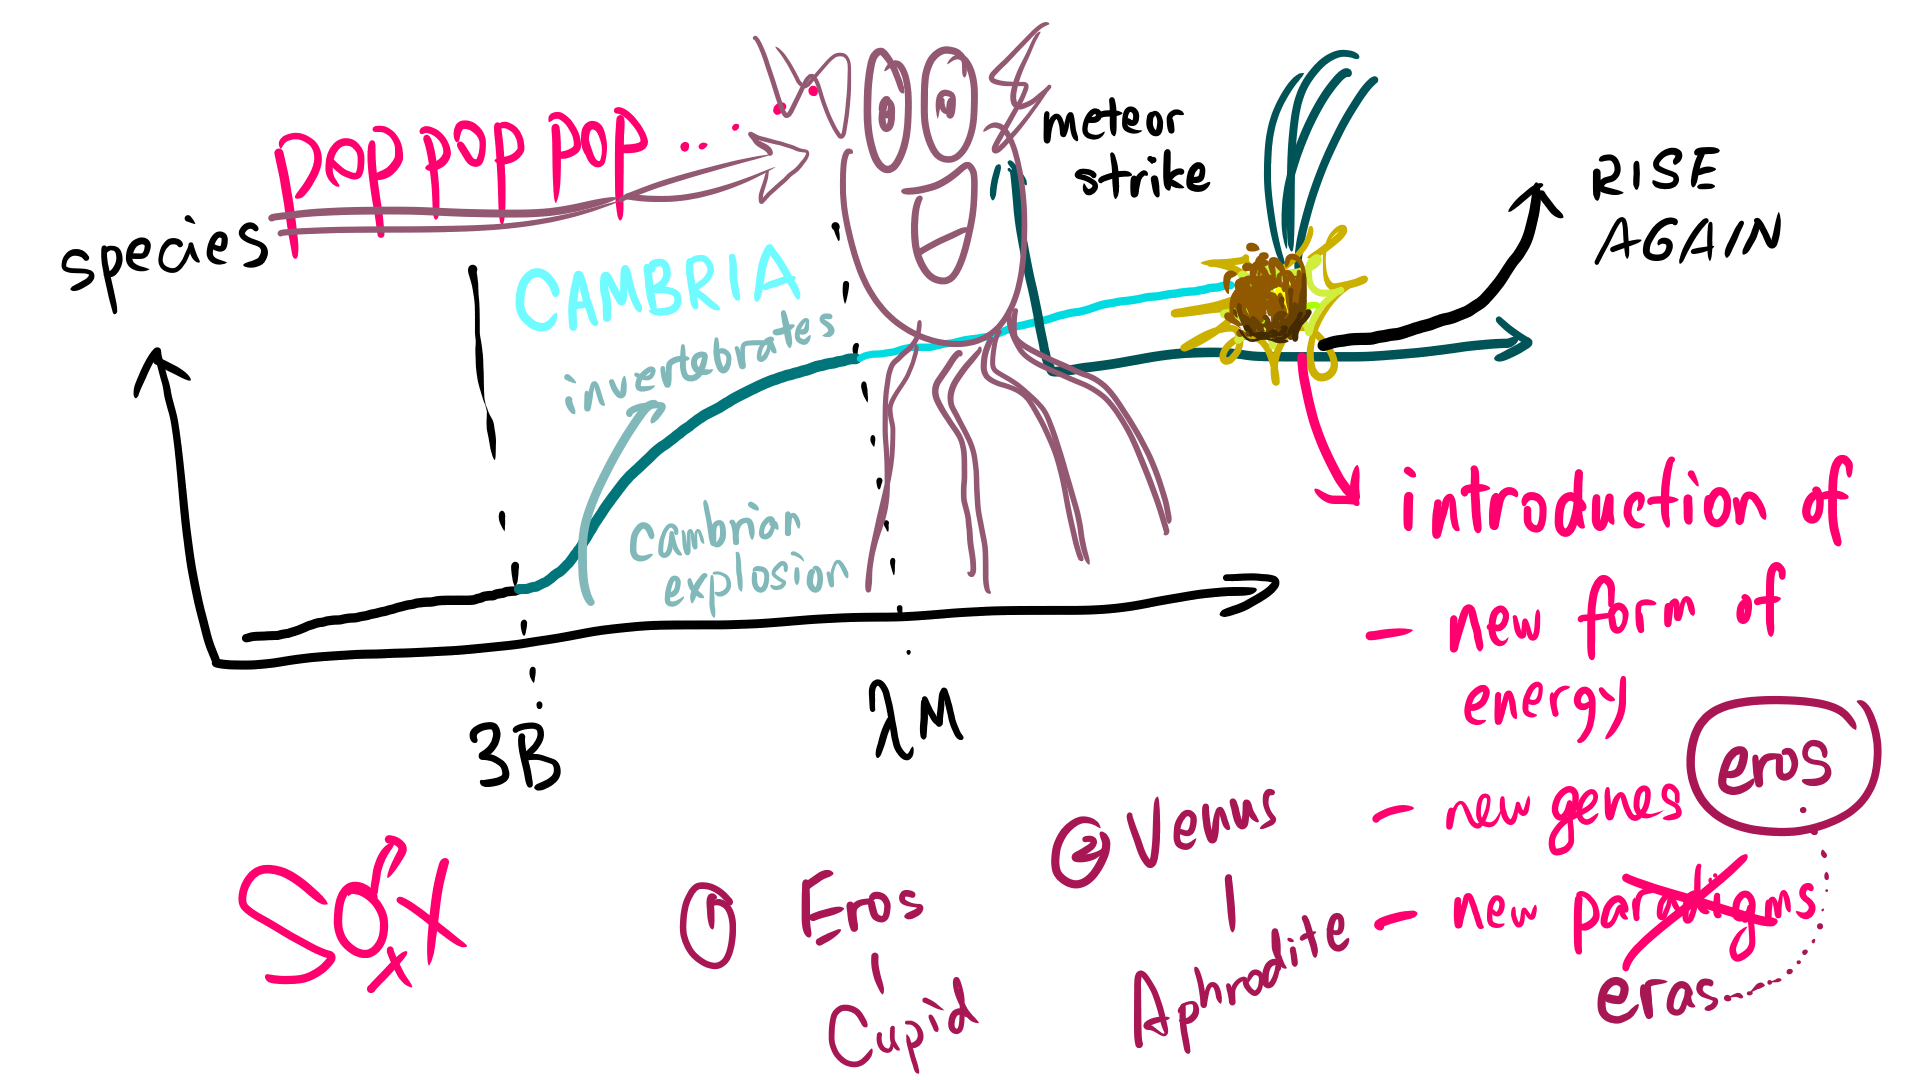 pop pop pop...
species
CAMBRIA
invertebrates
cambrian
explosion
meteor
strike
RISE
AGAIN
3B
2M
introduction of
- new form of
energy
- new genes
eros
- new paradigms
eras
① Eros
Cupid
② Venus
Aphrodite